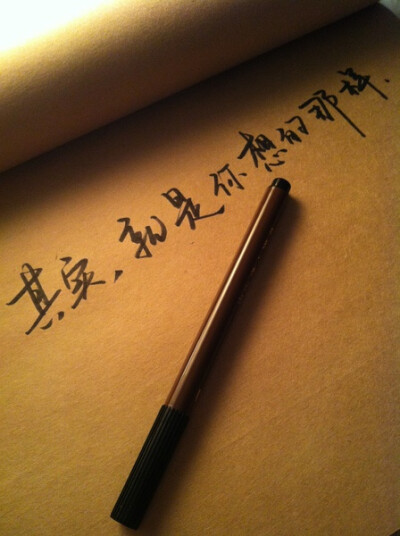 其实，就是你想的那样.